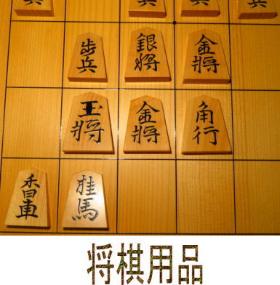 歩兵 銀将 金将
玉将 金将 角行
香車 桂馬
将棋用品